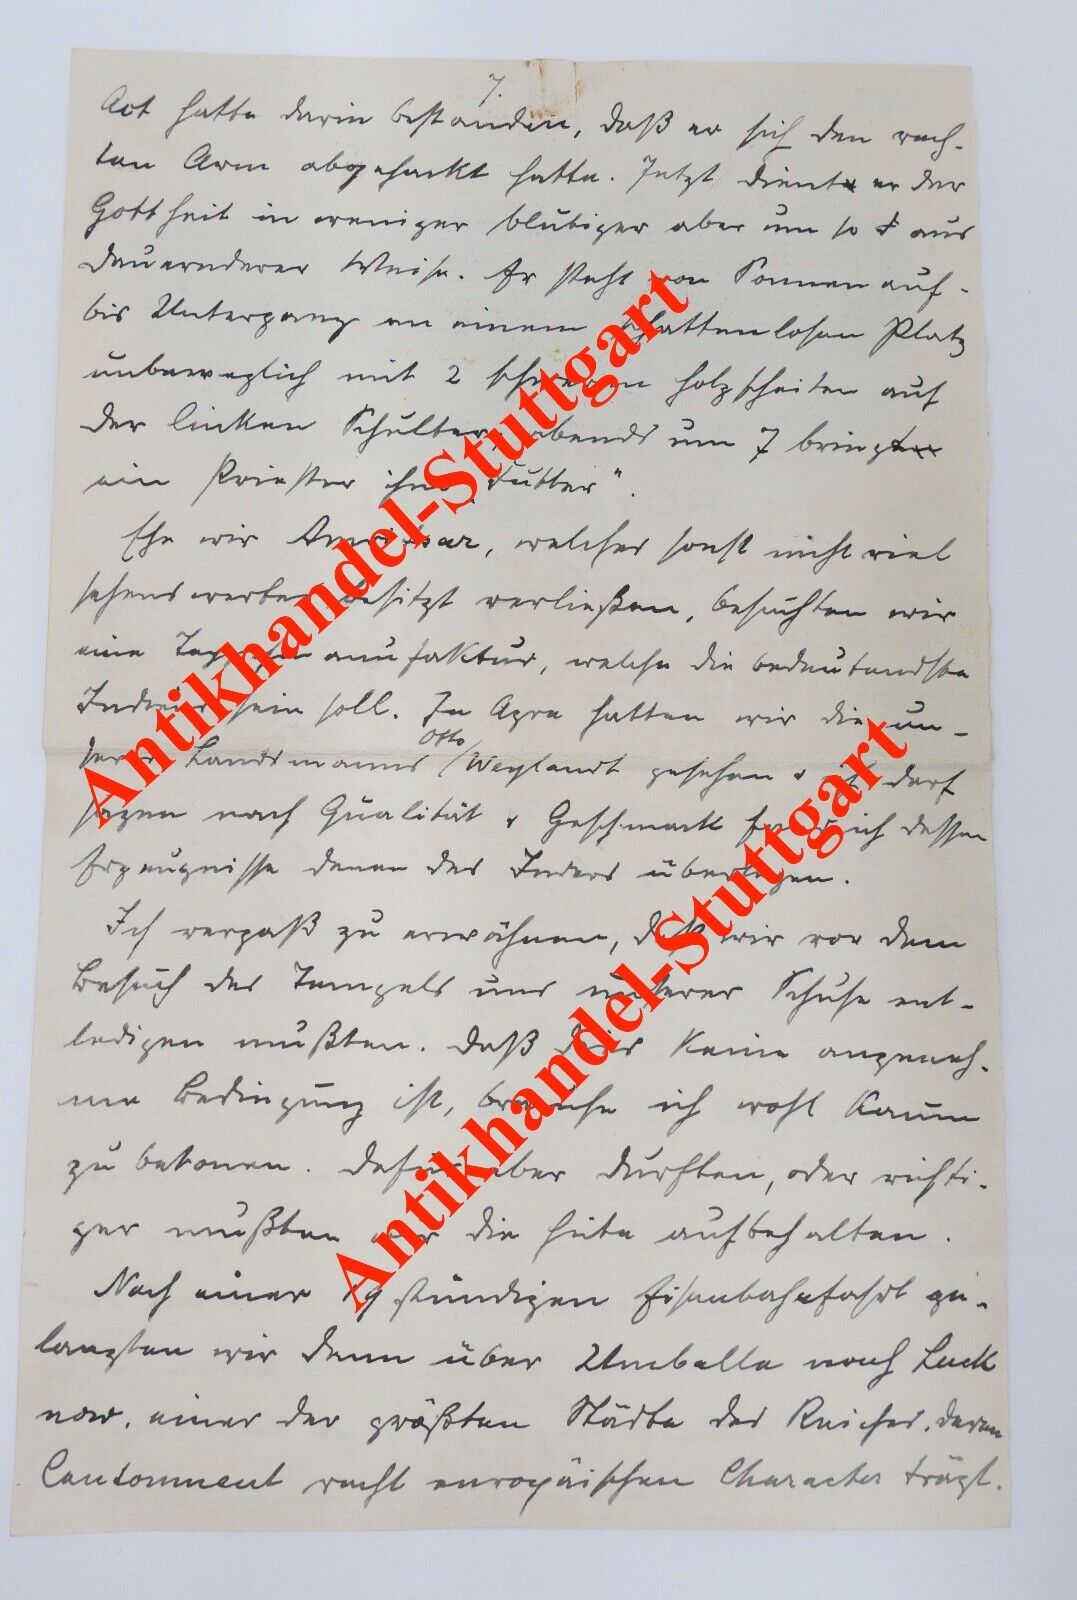 7.
Act hatte darin bestanden, daß er sich den rech-
ten Arm abgehackt hatte. Jetzt dient er der
Gottheit in weniger blutiger aber um so aus
dauernderer Weise. Er steht von Sonnenauf-
bis Untergang an einem schattenlosen Platz
unbeweglich mit 2 schweren Holzscheiten auf
der linken Schulter, abends um 7 bringt
ein Priester ihm „Futter“.
Ehe wir Amritsar, welches sonst nicht viel
sehenswertes besitzt verließen, besuchten wir
eine Teppichmanufaktur, welche die bedeutendste
Indiens sein soll. In Agra hatten wir die un-
seres Landsmanns Otto Weylandt gesehen & ich darf
sagen nach Qualität & Geschmack fand ich dessen
Erzeugnisse denen des Inders überlegen.
Ich vergaß zu erwähnen, daß wir vor dem
Besuch des Tempels uns unserer Schuhe ent-
ledigen mußten. Daß dies keine angeneh-
me Bedingung ist, brauche ich wohl kaum
zu betonen. Dafür aber durften, oder richti-
ger mußten wir die Hüte aufbehalten.
Nach einer 19 stündigen Eisenbahnfahrt ge-
langten wir dann über Umballa nach Luck
now, einer der größten Städte des Reiches, deren
Cantonment recht europäischen Character trägt.
Antikhandel-Stuttgart
Antikhandel-Stuttgart